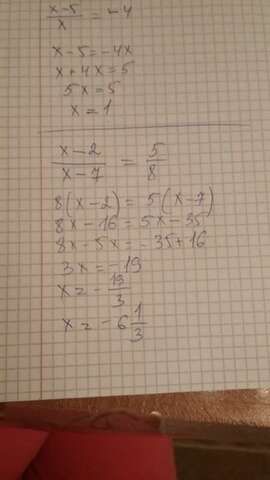 x-5/x = -4
x-5=-4x
x+4x=5
5x=5
x=1
x-2/x-7 = 5/8
8(x-2)=5(x-7)
8x-16=5x-35
8x-5x=-35+16
3x=-19
x=-19/3
x=-6 1/3